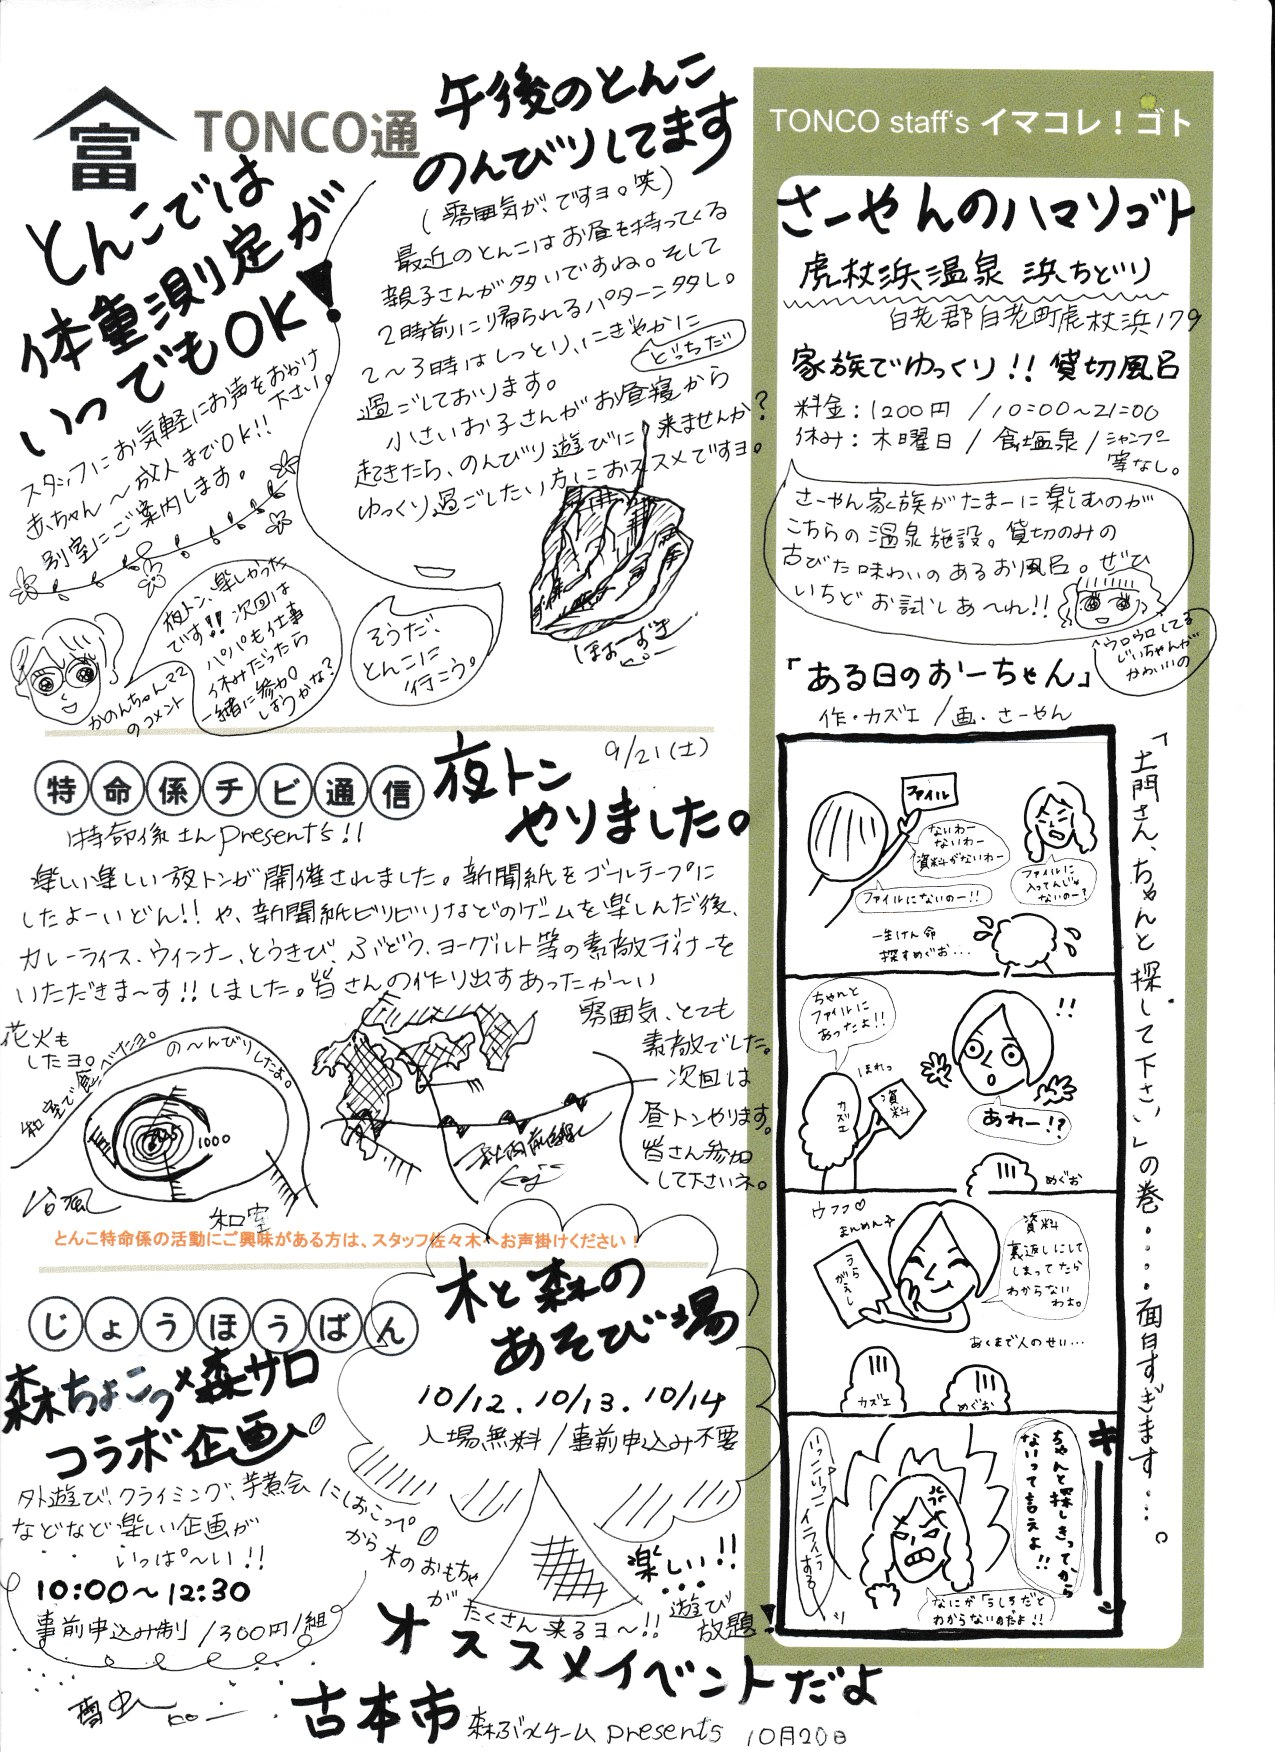 富
TONCO通
とんこでは
体重測定が
いつでもOK!
スタッフにお気軽にお声をおかけ
下さい。
赤ちゃん〜成人までOK!!
別室にご案内します。
夜トン、楽しかった
です!! 次回は
パパも仕事
休みだったら
一緒に参加
しようかな?
かのんちゃんママ
のコメント
午後のとんこ
のんびりしてます
(雰囲気が、ですヨ。笑)
最近のとんこはお昼を持ってくる
親子さんが多いですね。そして
2時前に帰られるパターン多し。
2〜3時はしっとり、にぎやかに
どっちだ
過ごしております。
小さいお子さんがお昼寝から
起きたら、のんびり遊びに来ませんか?
ゆっくり過ごしたい方におススメですヨ。
そうだ、
とんこに
行こう。
ほおずき
特命係チビ通信
特命係さんpresents!!
夜トン
やりました。
9/21(土)
楽しい楽しい夜トンが開催されました。新聞紙をゴールテープに
したよーいどん!! や、新聞紙ビリビリなどのゲームを楽しんだ後、
カレーライス、ウィンナー、とうきび、ぶどう、ヨーグルト等の素敵ディナーを
いただきま〜す!! しました。皆さんの作り出すあったか〜い
雰囲気、とても
素敵でした。
次回は
昼トンやります。
皆さん参加
して下さいネ。
花火も
したヨ。
和室で食べたヨ。
の〜んびりしたよ。
1000
台風
和室
とんこ特命係の活動にご興味がある方は、スタッフ佐々木へお声掛けください!
じょうほうばん
森ちょこっ×森サロ
コラボ企画
外遊び、クライミング、芋煮会
などなど楽しい企画が
いっぱ〜い!!
10:00〜12:30
事前申込み制/300円/組
雪虫
木と森の
あそび場
10/12.10/13.10/14
入場無料/事前申込み不要
にしおこっぺ
から木のおもちゃ
が
たくさん来るヨ〜!!
楽しい!!
遊び
放題!
オススメイベントだよ
古本市
森ぶっくチーム presents 10月20日
TONCO staff's イマコレ!ゴト
さーやんのハマリゴト
虎杖浜温泉 浜ちどり
白老郡白老町虎杖浜179
家族でゆっくり!! 貸切風呂
料金:1200円 /10:00〜21:00
休み:木曜日/食塩泉/シャンプー
等なし。
さーやん家族がたまーに楽しむのが
こちらの温泉施設。貸切のみの
古びた味わいのあるお風呂。ぜひ
いちどお試しあ〜れ!!
ウロウロしてる
じいちゃんが
かわいいの
「ある日のおーちゃん」
作・カズエ/画・さーやん
ファイル
ないわー
ないわー
資料がないわー
ファイルにないのー!!
ファイルに
入ってんじゃ
ないのー?
一生けん命
探すめぐお...
ちゃんと
ファイルに
あったよ!!
ほれっ
カズエ
資料
!!
あれー!?
めぐお
ウフフ♡
まんめん子
うらがえし
資料
裏返しにして
しまってたら
わからない
わよ。
あくまで人のせい...
カズエ
めぐお
キーーーッ
ちゃんと探しきってから
ないって言えよ!!
いっこいっこイライラする〜
なにが「うしろだと
わからないのだよ!!
「土門さん、ちゃんと探して下さい」の巻・・・・・面白すぎます・・・。